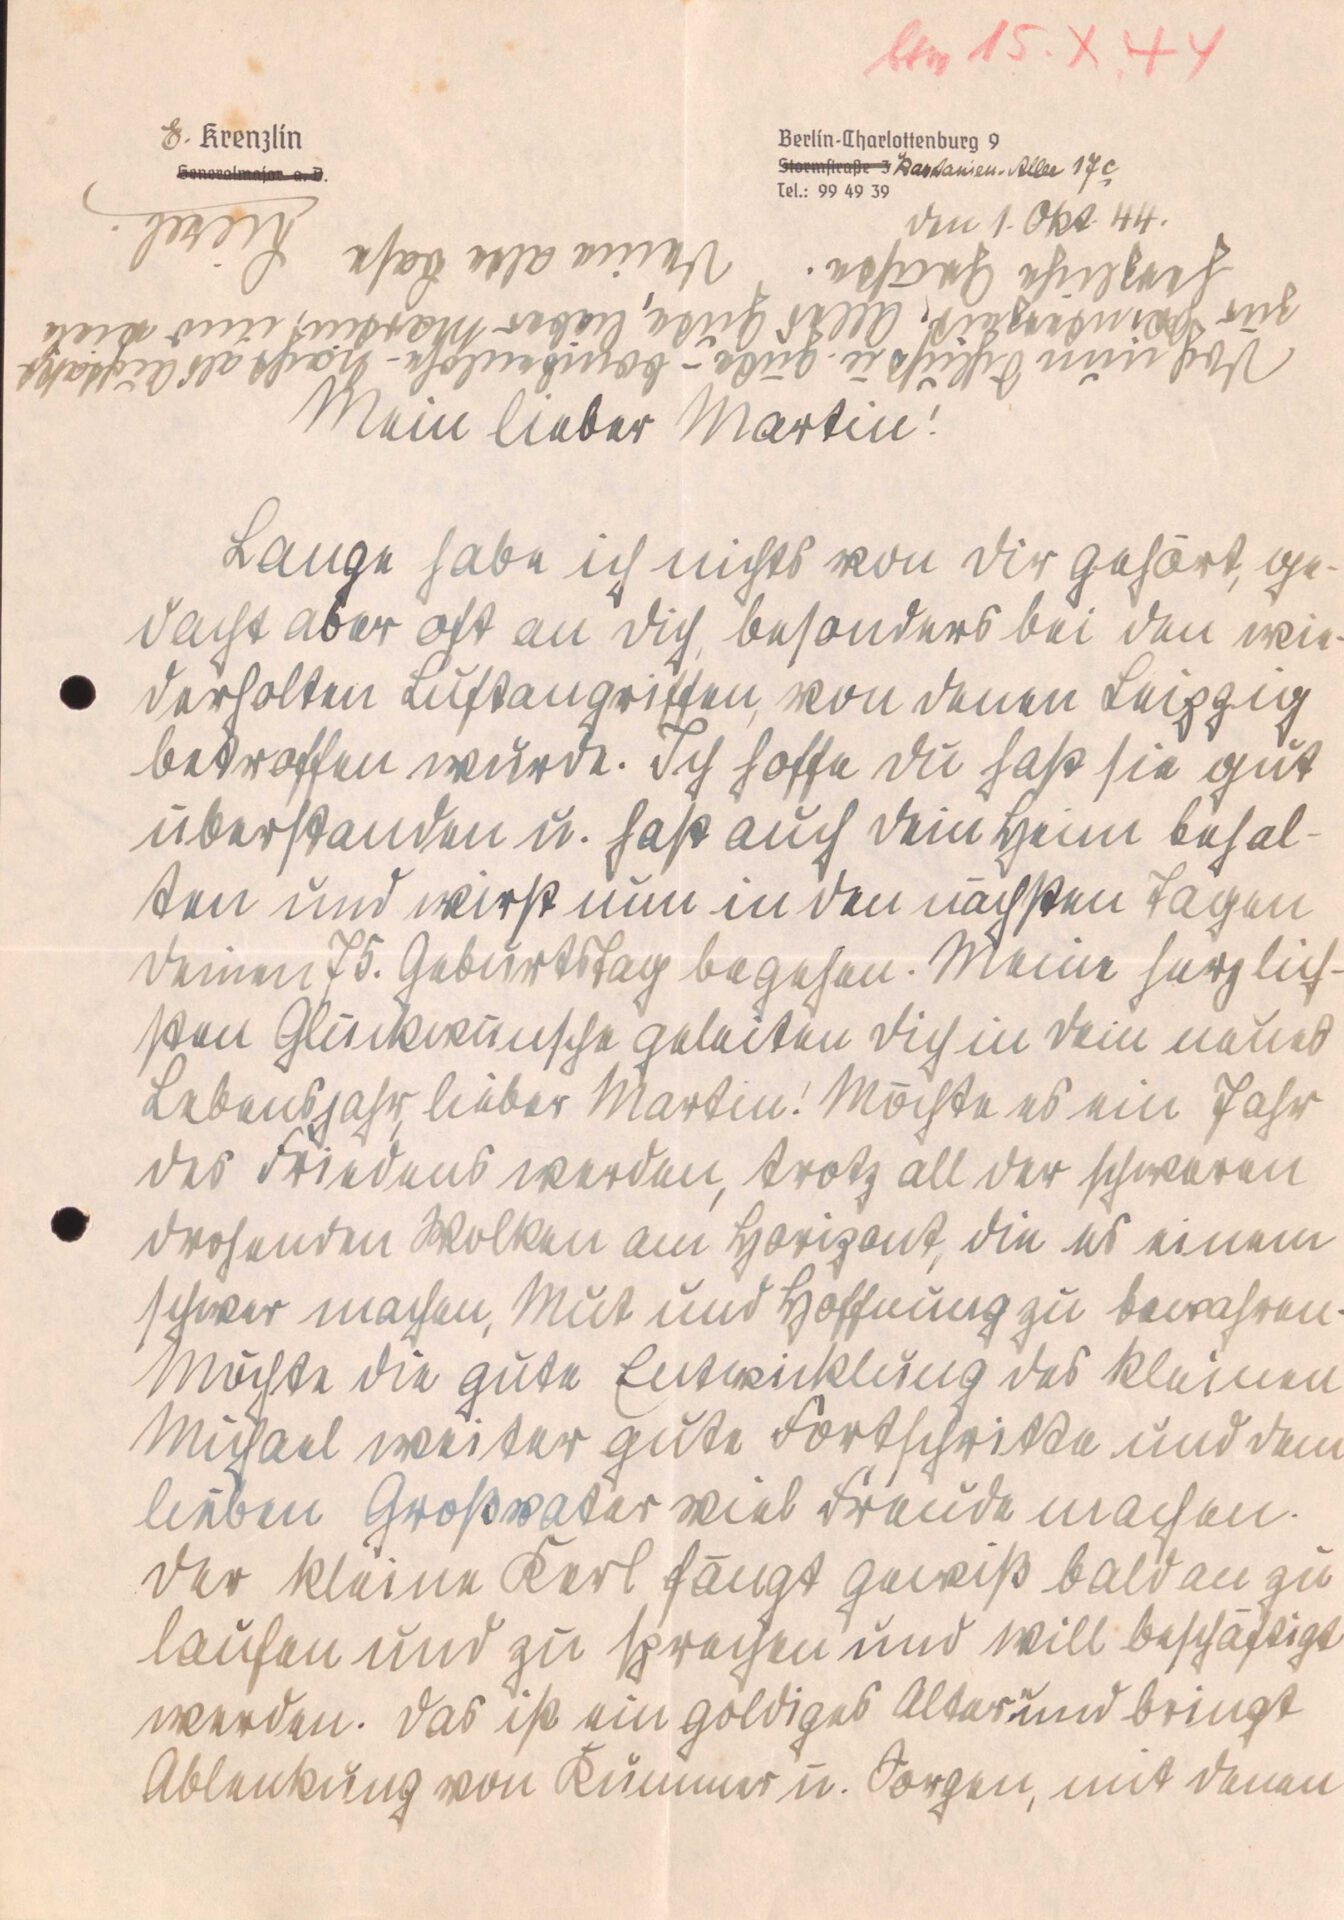 15. X. 44
E. Krenzlin
Generalmajor a. D.
Berlin-Charlottenburg 9
Stormstraße 3 Kastanien-Allee 17c
Tel.: 99 49 39
den 1. Okt. 44.
Mein lieber Martin!
Lange habe ich nichts von Dir gehört, ge-
dacht aber oft an Dich, besonders bei den wie-
derholten Luftangriffen, von denen Leipzig
betroffen wurde. Ich hoffe Du hast sie gut
überstanden u. hast auch Dein Heim behal-
ten und wirst nun in den nächsten Tagen
Deinen 75. Geburtstag begehen. Meine herzlich-
sten Glückwünsche geleiten Dich in Dein neues
Lebensjahr, lieber Martin! Möchte es ein Jahr
des Friedens werden, trotz all der schweren
drohenden Wolken am Horizont, die es einem
schwer machen, Mut und Hoffnung zu bewahren.
Möchte die gute Entwicklung des kleinen
Michael weiter gute Fortschritte und dem
lieben Großvater viel Freude machen.
Der kleine Kerl fängt gewiß bald an zu
laufen und zu sprechen und will beschäftigt
werden. Das ist ein goldiges Alter und bringt
Ablenkung von Kummer u. Sorgen, mit denen
Doch nun Schluß u. gute - bombenlose - Nacht als
zur Alles Gute, lieber Martin, und viele
herzliche Grüße. Deine alte Base